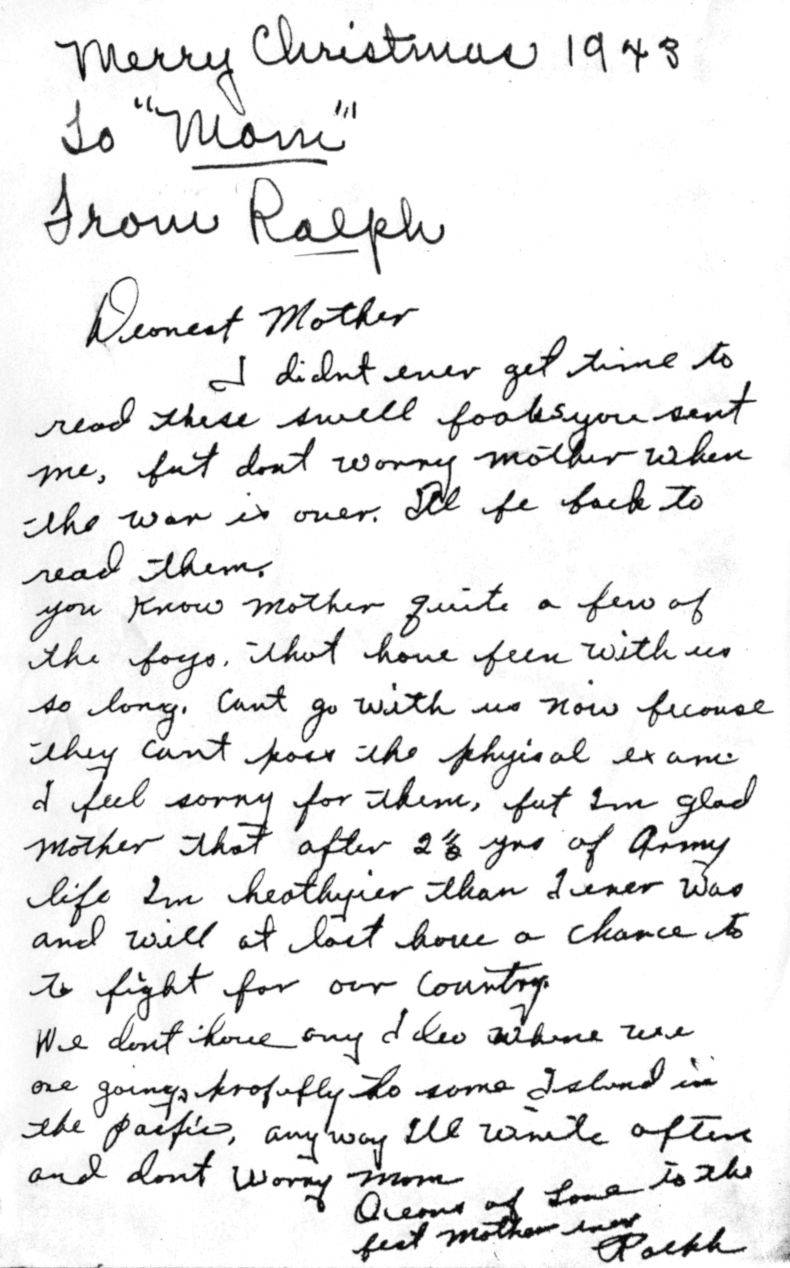 Merry Christmas 1943
To "Mom"
From Ralph
Dearest Mother
I didnt ever get time to
read these swell books you sent
me, but dont worry mother when
the war is over. I'll be back to
read them.
you know mother quite a few of
the boys. that have been with us
so long. Cant go with us now because
they cant pass the phyisal exam.
I feel sorry for them, but Im glad
mother that after 2½ yrs of Army
life Im heathyier than I ever was
and will at last have a chance to
to fight for our Country.
We dont have any Idea where we
are going, probably to some Island in
the pacific, anyway I'll write often
and dont Worry Mom
Oceans of Love to the
best mother ever
Ralph